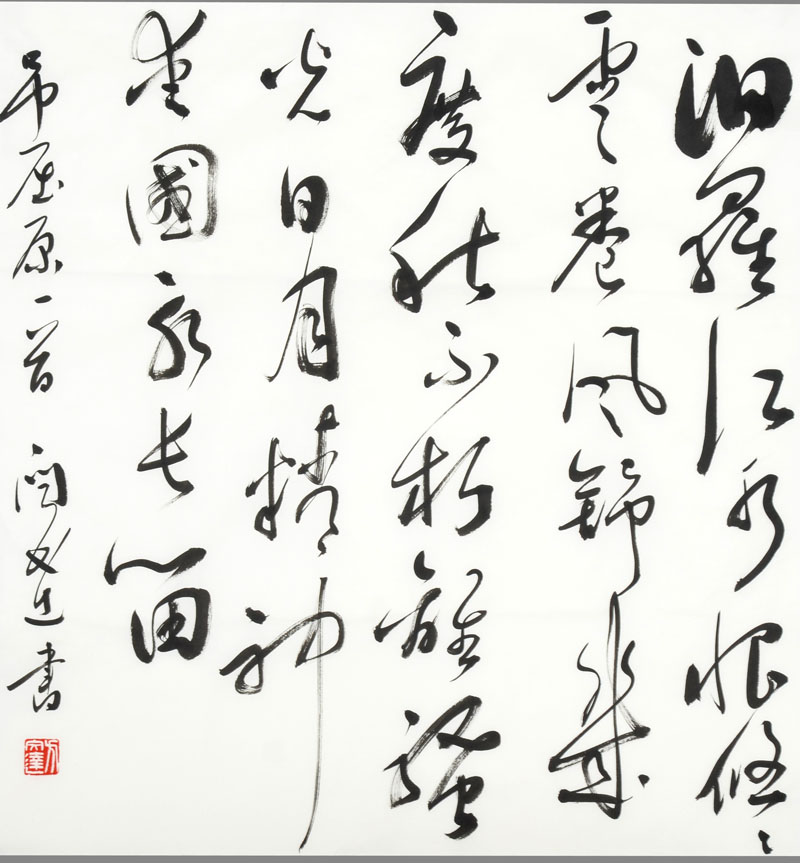 汨羅江水恨悠〻
雲卷風歸幾
度秋不朽離騷
光日月精神
愛國永長留
吊屈原一首 文達書